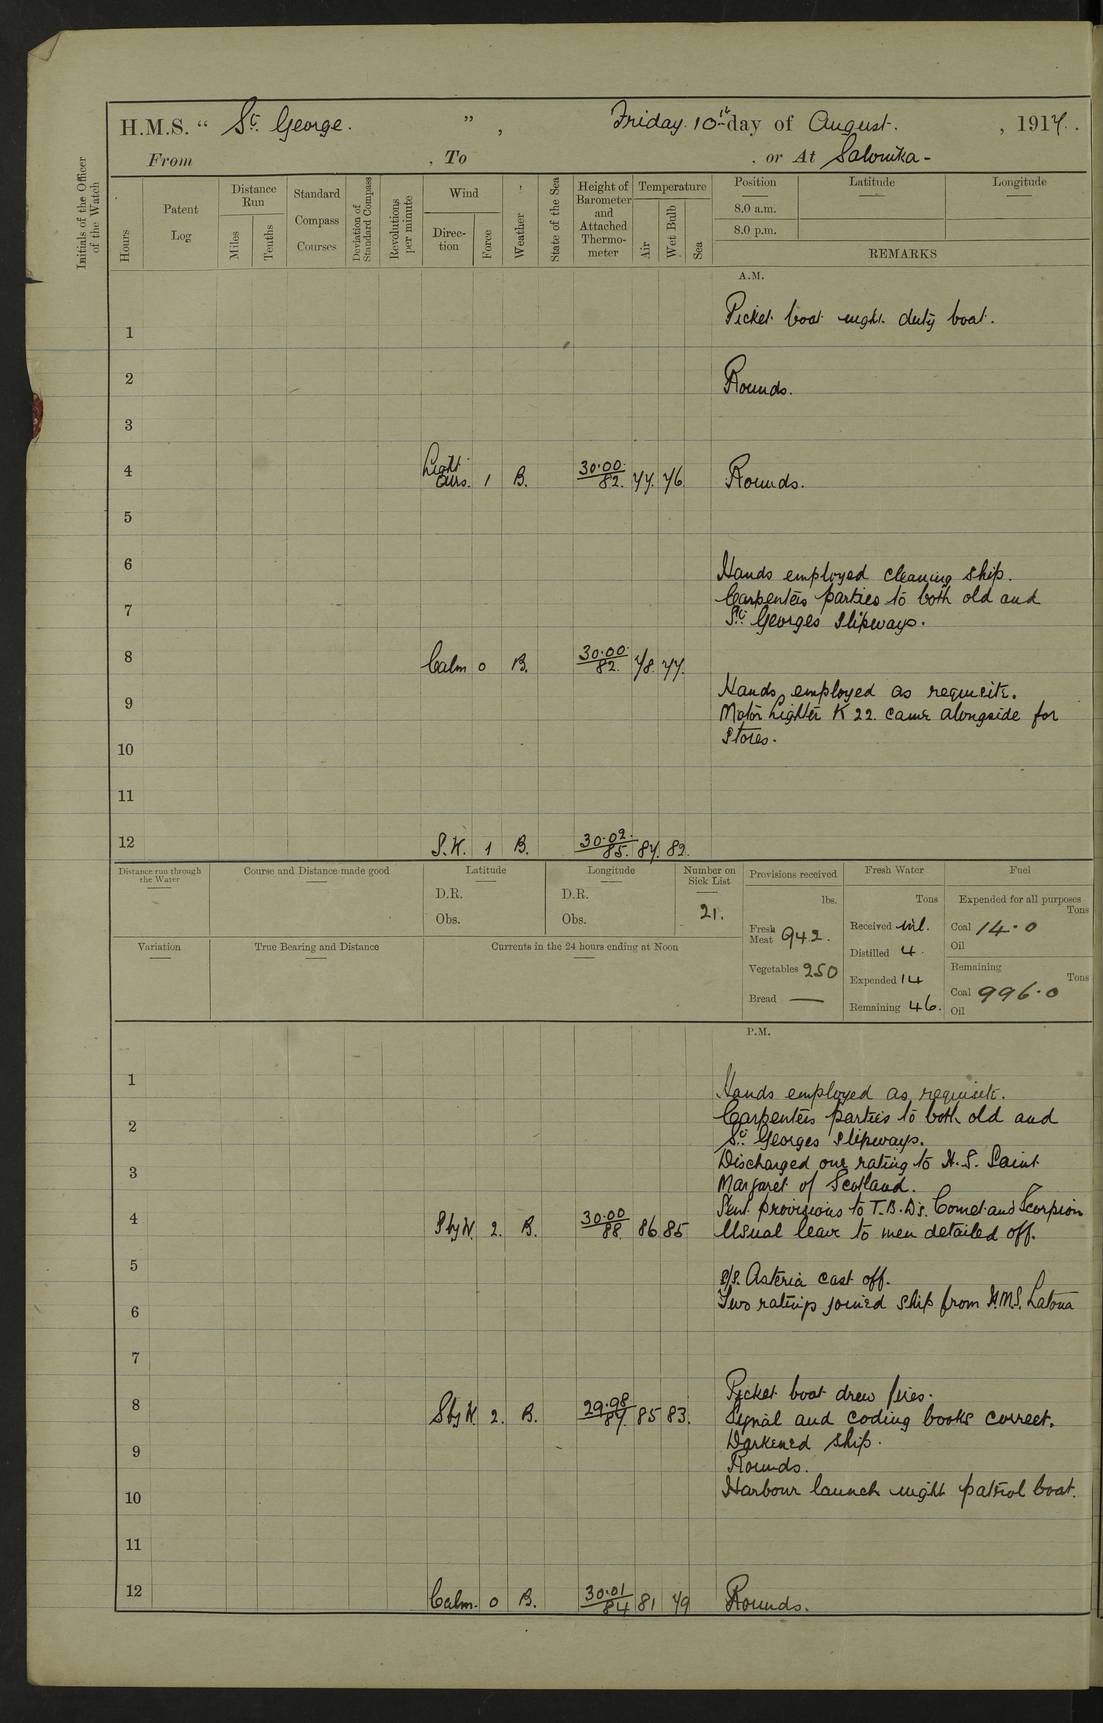 H.M.S. “ St. George. ” , Friday 10th day of August. , 1917.
From , To , or At Salonika -
Initials of the Officer of the Watch
Hours
Patent Log
Distance Run
Miles
Tenths
Standard Compass Courses
Deviation of Standard Compass
Revolutions per minute
Wind
Direction
Force
Weather
State of the Sea
Height of Barometer and Attached Thermometer
Temperature
Air
Wet Bulb
Sea
Position Latitude Longitude
8.0 a.m.
8.0 p.m.
REMARKS
A.M.
1 Picket boat night duty boat.
2 Rounds.
3
4 Light airs. 1 B. 30.00 / 82. 77. 76 Rounds.
5
6 Hands employed cleaning ship.
7 Carpenters parties to both old and
St. Georges Slipways.
8 Calm 0 B. 30.00 / 82. 78. 77.
9 Hands employed as requisite.
Motor Lighter K 22. came alongside for
10 Stores.
11
12 1 B. 30.02. / 85. 87. 82.
Distance run through the Water
Course and Distance made good
Latitude
D.R.
Obs.
Longitude
D.R.
Obs.
Number on Sick List
21.
Provisions received
lbs.
Fresh Meat 942.
Vegetables 250
Bread —
Fresh Water
Tons
Received nil.
Distilled 4.
Expended 14
Remaining 46.
Fuel
Expended for all purposes
Tons
Coal 14.0
Oil
Remaining
Tons
Coal 996.0
Oil
Variation
True Bearing and Distance
Currents in the 24 hours ending at Noon
P.M.
1 Hands employed as requisite.
2 Carpenters parties to both old and
St. Georges Slipways.
3 Discharged one rating to H.S. Saint
Margaret of Scotland.
Sent provisions to T.B.D's. Comet and Scorpion
4 SbyW. 2. B. 30.00 / 88. 86 85 Usual leave to men detailed off.
5 S/S. Asteria cast off.
6 Two ratings joined ship from H.M.S. Latona
7
Picket boat drew fires.
8 SbyW. 2. B. 29.98 / 87. 85 83. Signal and coding books correct.
9 Darkened ship.
Rounds.
10 Harbour launch night patrol boat.
11
12 Calm. 0 B. 30.01 / 84 81 79 Rounds.